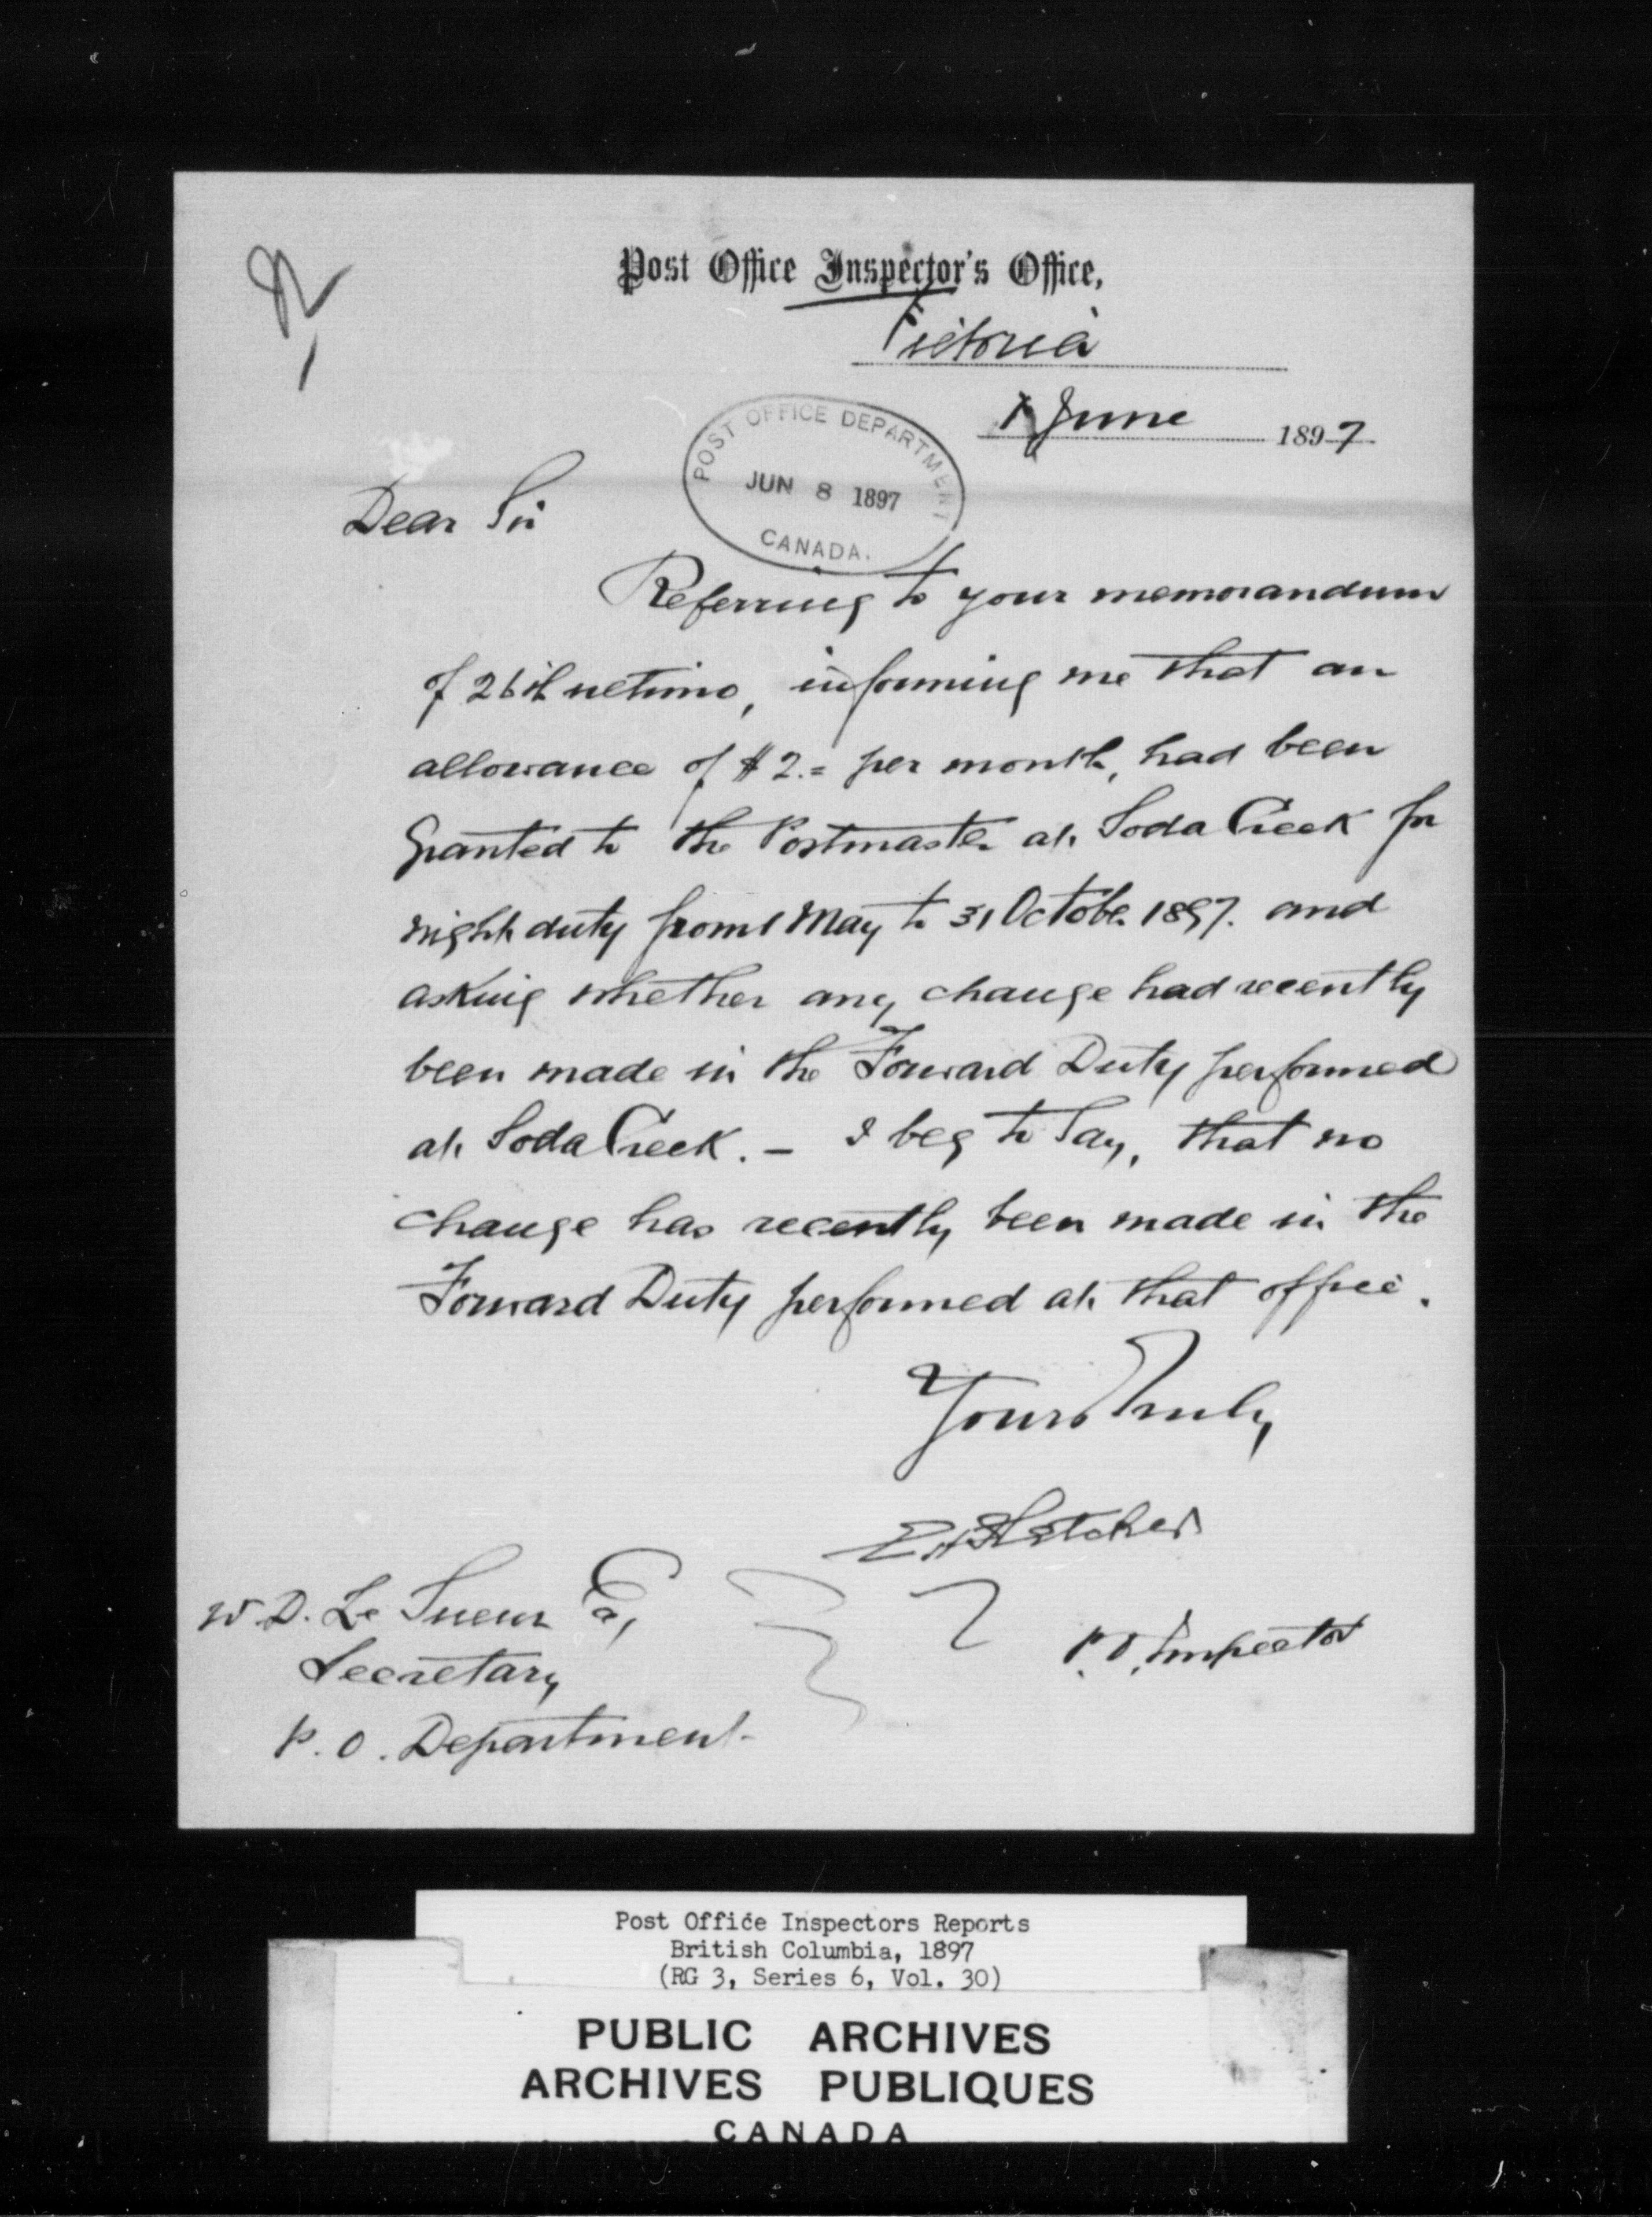 Post Office Inspector's Office,
Victoria
1 June 1897
POST OFFICE DEPARTMENT
JUN 8 1897
CANADA.
Dear Sir
Referring to your memorandum
of 26th ultimo, informing me that an
allowance of $2.= per month, had been
Granted to the Postmaster at Soda Creek for
night duty from 1 May to 31 October 1897. and
asking whether any change had recently
been made in the Forward Duty performed
at Soda Creek. - I beg to Say, that no
change has recently been made in the
Forward Duty performed at that office.
Yours Truly
E H Fletcher
P.O. Inspector
W. D. Le Sueur Esq,
Secretary
P. O. Department
Post Office Inspectors Reports
British Columbia, 1897
(RG 3, Series 6, Vol. 30)
PUBLIC ARCHIVES
ARCHIVES PUBLIQUES
CANADA